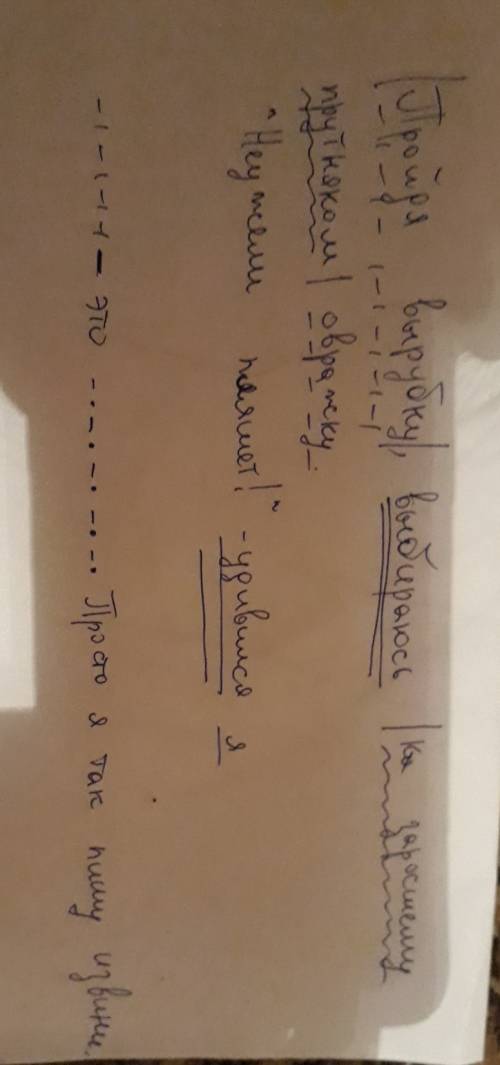 |Пройдя вырубку|, выбираюсь |к заросшему
прутняком| овражку.
"Неужели плямет!" - удивился я
-ı-ı-ı-ı- это -.-.-.-.-. Просто я так пишу извини.